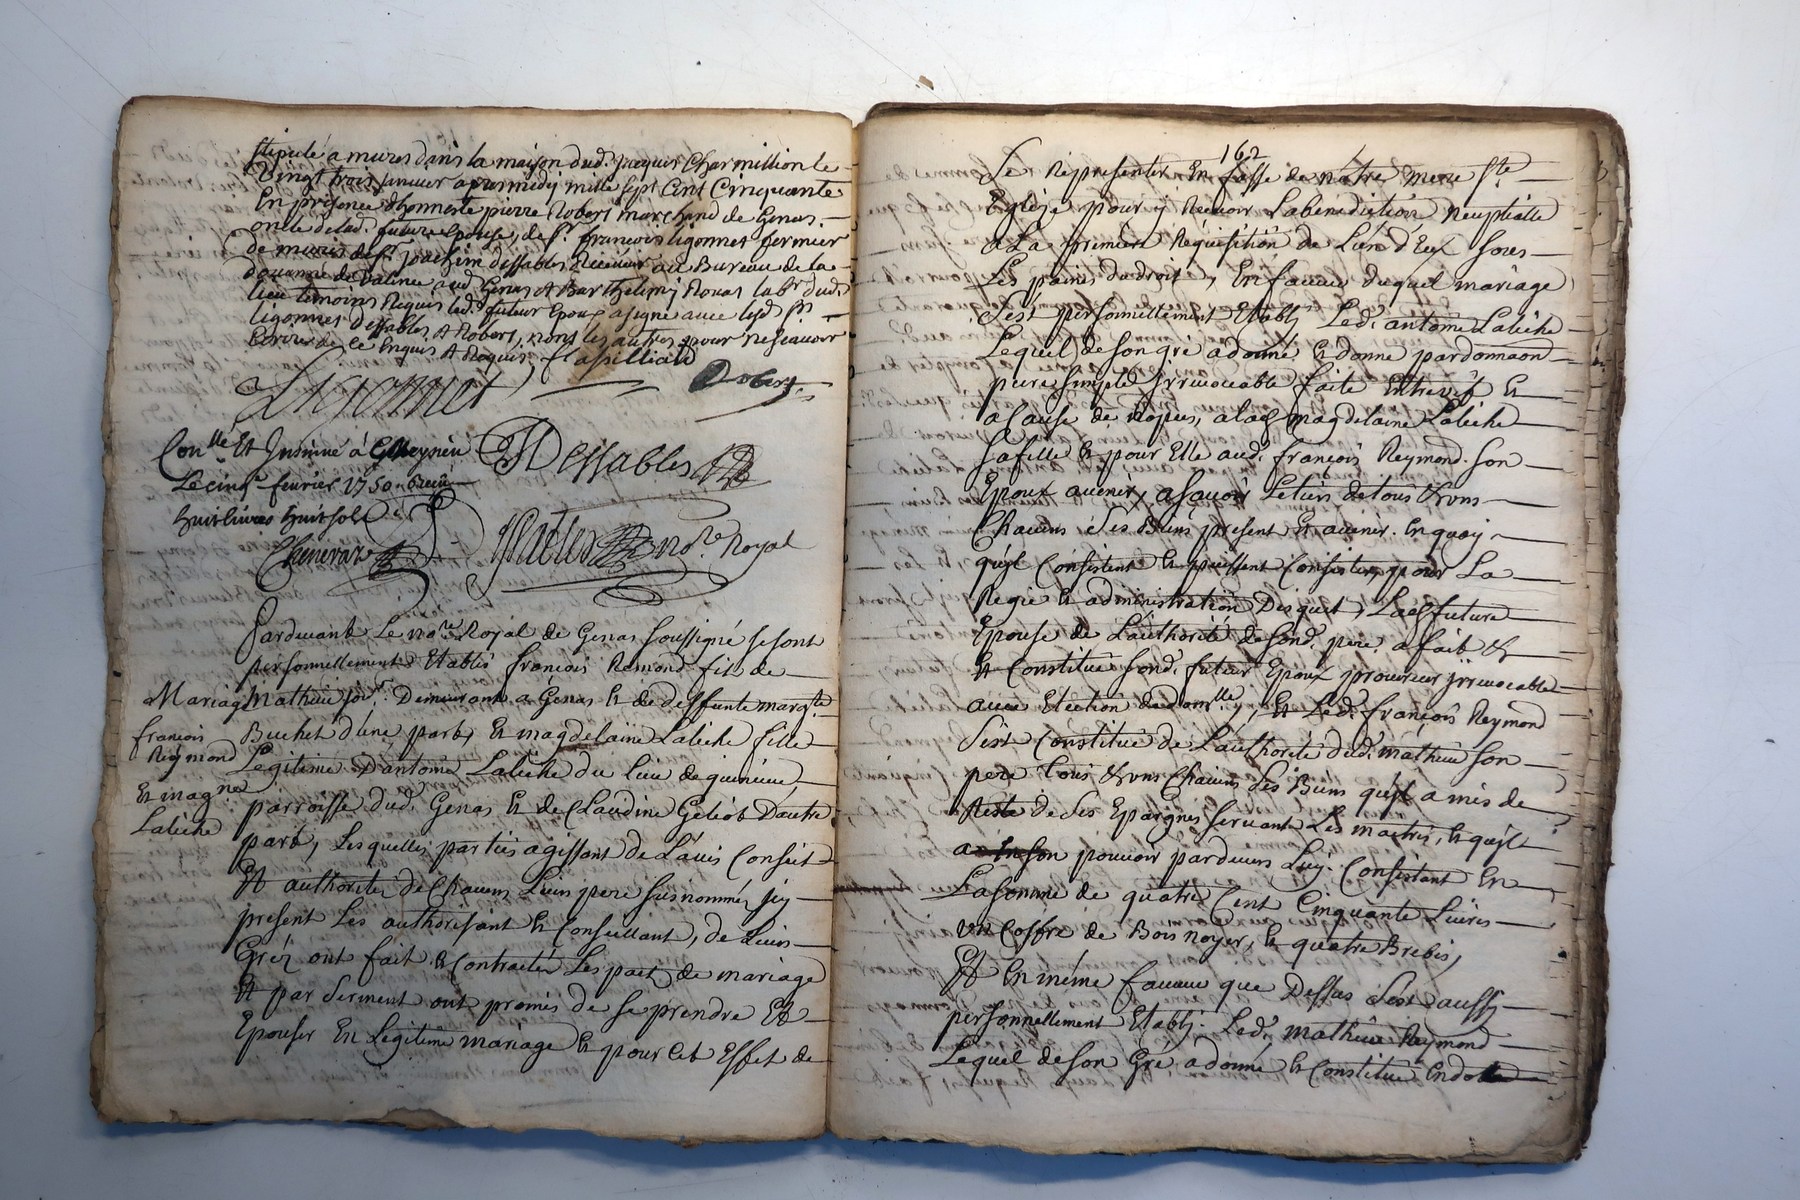 stipulé a mures dans la maison dud. jacques Charmillion le
Vingt trois janvier apres midy mille sept Cent Cinquante
En presence d'honneste pierre Robert marchand de Genas
oncle de lad. future Epouse, de sr. francois ligonnet fermier
de mures de sr. joachim dessables Receveur au Bureau de la
douanne de Valence aud Genas et Barthelemy Rouas labr dud.
lieu temoins Requis led. futeur Epoux a signé avec lesd. srs
ligonnet dessables et Robert, nons les autres pour ne scavoir
Ecrire de ce Enquis et Requis,
Ligonnet Robert
Con.llé Et Insinué à Meyzieu Dessables
Le cinq fevrier 1750 Receu
huit livres huit sols
no.re Royal
Pardevant Le no.re Royal de Genas soussigné se sont
personnellement Etablis françois Remond fils de
Mariage Mathieu jor. Demeurant a Genas et de deffunte margte.
françois Buchet d'une part, Et magdelaine Labiche fille
Reymond Legitime D'antoine Labiche du lieu de
Et magne. parroisse dud. Genas Et de Claudine Geliot Dautre
Labiche part, Lesquelles parties agissant de L'avis Conseit
Et authorité de Chacun Leur pere susnommés jcy
present Les authorisant et Conseillant, de Leurs
Gréz ont fait et Contractés Les pact de mariage
Et par serment ont promis de se prendre Et
Epouser En Legitime mariage et pour Cet Effet de
162
Se Representer En fasse de notre mere ste.
Eglise pour y Recevoir La benediction Neuptialle
a La premiere Requisition de L'un d'Eux sous
Les paines du droit, En faveur duquel mariage
s'est personnellement Etably Led. antoine Labiche
Lequel de son gré a donné et donne par donnaon
pure simple jrrevocable faite Entre vif Et
a Cause de Nopces, a lad. magdelaine Labiche
sa fille et pour Elle aud. françois Reymond son
Epoux avenir, a scavoir Le tiers de tous et vns
Chacuns ses Biens present Et avenir. En quoy
qu'jl Consistent et puissent Consister, pour La
Regie et administration Disquels, Lad. future
Epouse de L'authorité de sond. pere, a fait et
Et Constitué sond. futeur Epoux procureur jrrevocable
avec Election de dom.lle, Et Led. françois Reymond
s'est Constitué de L'authorité dud. mathieu son
pere tous et vns Chacuns ses Biens qu'jl a mis de
Reste de ses Epargnes servant Les maitres, Et qu'jl
a En son pouvoir pardevers Luy. Consistant En
La somme de quatre Cent Cinquante Livres
vn Coffre de Bois noyer, Et quatre Brebis,
Et En même faveur que Dessus s'est aussy
personnellement Etably. Led. mathieu Reymond
Lequel de son Gré a donné et Constitué En dotte